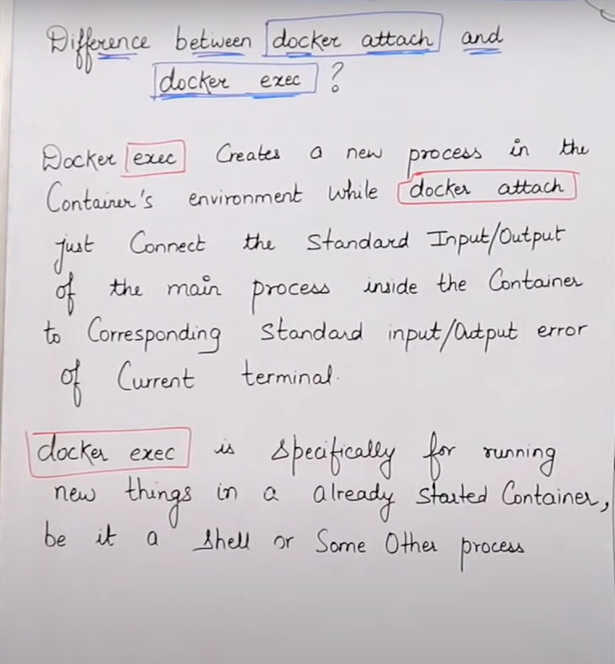 Difference between docker attach and
docker exec ?
Docker exec Creates a new process in the
Container's environment while docker attach
just Connect the Standard Input/Output
of the main process inside the Container
to Corresponding Standard input/Output error
of Current terminal.
docker exec is specifically for running
new things in a already started Container,
be it a shell or Some Other process